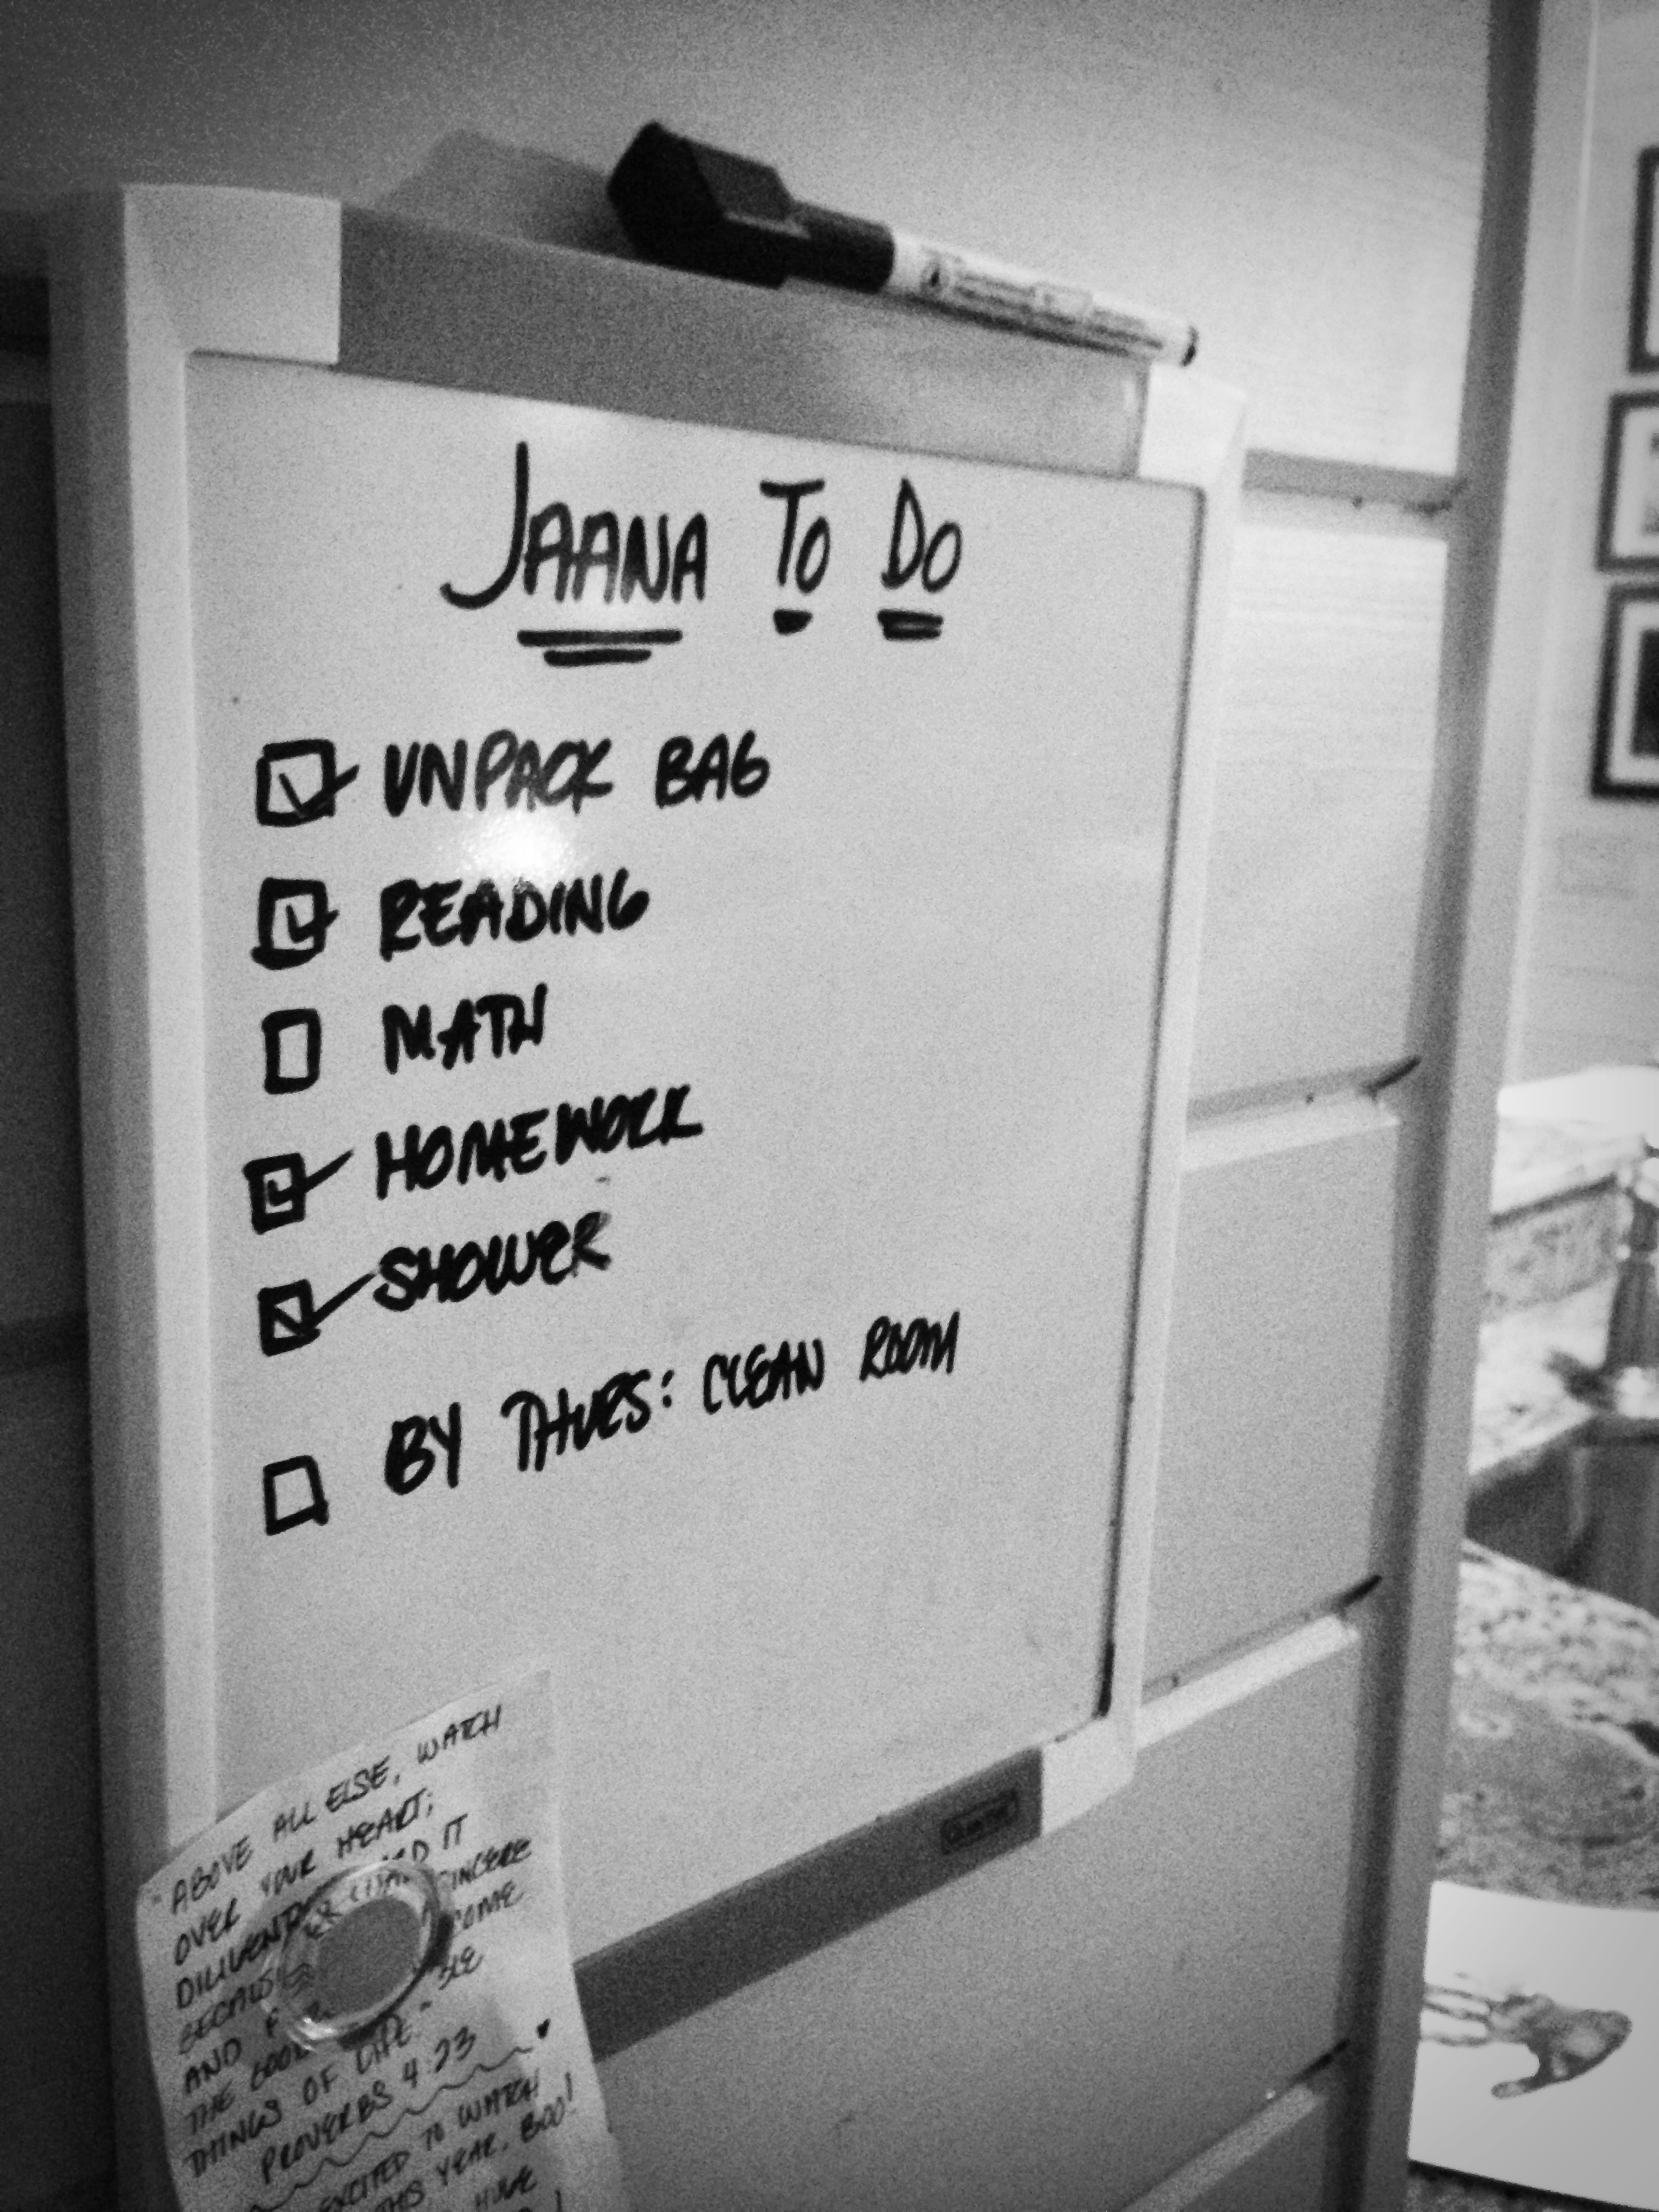 JAANA TO DO
UNPACK BAG
READING
MATH
HOMEWORK
SHOWER
BY THURS: CLEAN ROOM
"ABOVE ALL ELSE, WATCH
OVER YOUR HEART;
DILIGENTLY GUARD IT
SINCERE
AND COME
THE GOOD
THINGS OF LIFE."
PROVERBS 4:23
EXCITED TO WATCH
THIS YEAR, BOO!
HUGE